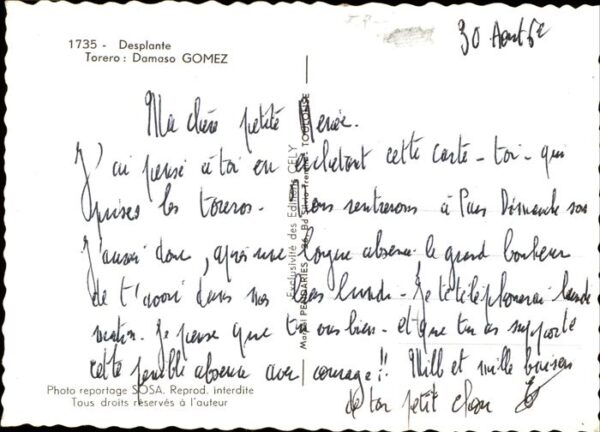 1735 - Desplante
Torero : Damaso GOMEZ
30 Aout
Ma chère petite
J'ai pensé à toi en achetant cette carte - toi - qui
prises les toreros - nous rentrerons à Paris Dimanche soir
J'aurai donc, après une longue absence le grand bonheur
de t'avoir dans mes bras lundi - Je te téléphonerai lundi
matin. Je pense que tu vas bien - et que tu as supporté
cette pénible absence avec courage !! Mille et mille baisers
de ton petit
Exclusivité des Editions CELY
Marcel PENDARIES - 36, Bd TOULOUSE
Photo reportage SOSA. Reprod. interdite
Tous droits réservés à l'auteur